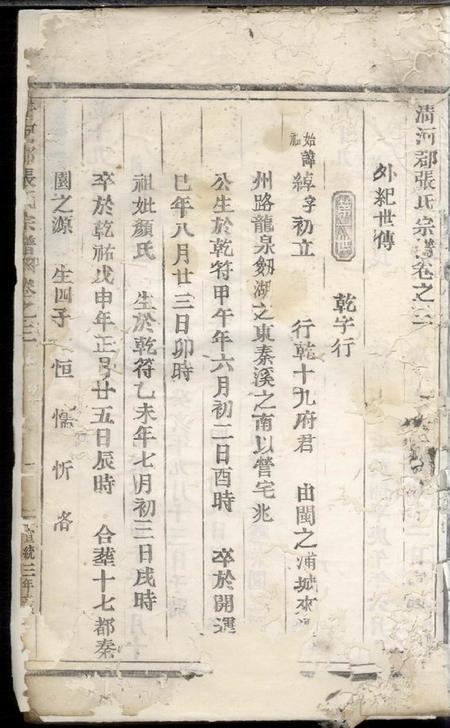 清河郡張氏宗譜卷之三
外紀世傳
乾字行
始祖諱綽字初立 行乾十九府君 由閩之浦城來
州路龍泉劔湖之東秦溪之南以營宅兆
公生於乾符甲午年六月初二日酉時 卒於開運
巳年八月廿三日卯時
祖妣顏氏 生於乾符乙未年七月初三日戌時
卒於乾祐戊申年正月廿五日辰時 合葬十七都秦
園之源 生四子 恒 懦 忻 洛
河郡張氏宗譜 卷之三 宣統三年